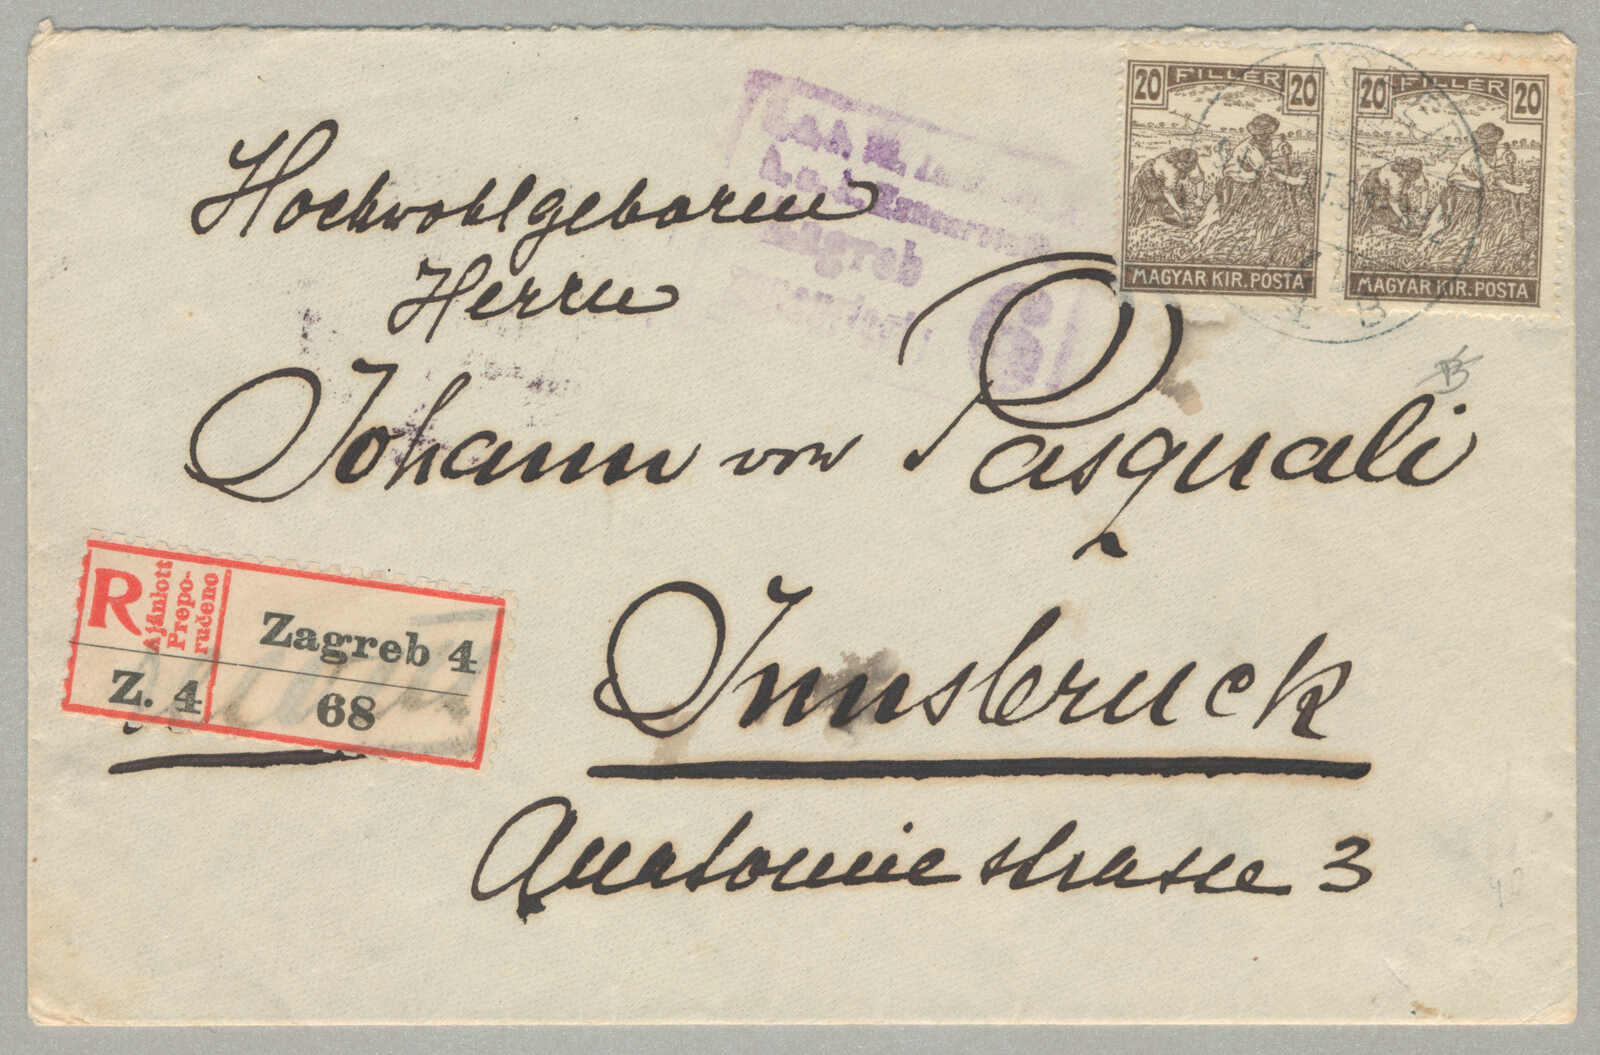 20 FILLÉR 20
MAGYAR KIR. POSTA
20 FILLÉR 20
MAGYAR KIR. POSTA
Zagreb
6
Hochwohlgeboren
Herrn
Johann von Pasquali
R
Ajánlott
Prepo-
ručeno
Zagreb 4
Z. 4
68
Innsbruck
Anatomiestrasse 3